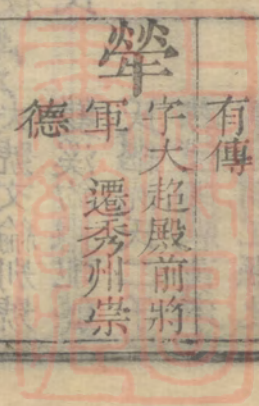 有傳
犖
字大超殿前將
軍 遷秀州崇
德